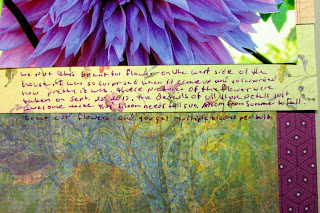 We put this beautiful flower on the west side of the
house, it was so surprised when it came up and so surprised
how pretty it was. These pictures of the flower were
taken on Sept. 25, 2017. The details of all those petals just
awesome. Big bloom needs full sun. Bloom from summer to fall.
cut flowers and you get multiple blooms per bulb.